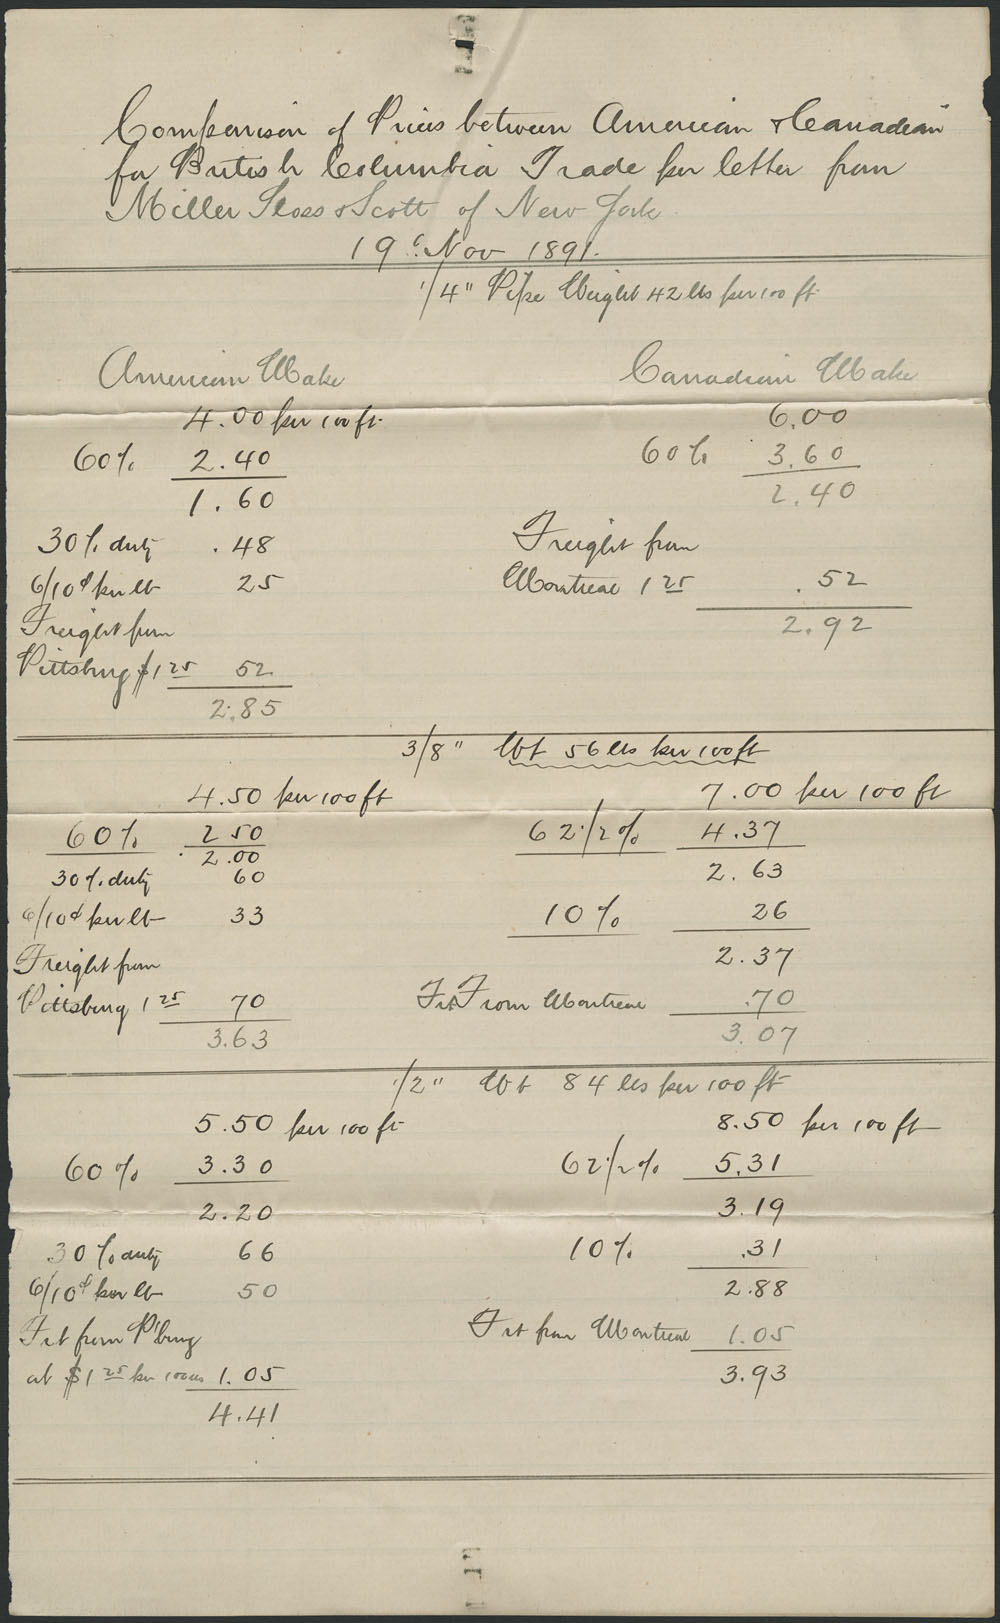 Comparison of Prices between American & Canadian
for British Columbia Trade per letter from
Miller Sloss & Scott of New York.
19th Nov 1891.
1/4" Pipe Weight 42 lbs per 100 ft
American Make
4.00 per 100 ft
60% 2.40
1.60
30% duty .48
6/10¢ per lb 25
Freight from
Pittsburg $1 25 52
2.85
Canadian Make
6.00
60% 3.60
2.40
Freight from
Montreal 1 25 .52
2.92
3/8" Wt 56 lbs per 100 ft
4.50 per 100 ft
60% 2 50
2.00
30% duty 60
6/10¢ per lb 33
Freight from
Pittsburg 1 25 70
3.63
7.00 per 100 ft
62 1/2% 4.37
2.63
10% 26
2.37
Frt From Montreal .70
3.07
1/2" Wt 84 lbs per 100 ft
5.50 per 100 ft
60% 3.30
2.20
30% duty 66
6/10¢ per lb 50
Frt from P'burg
at $1 25 per 100 lbs 1.05
4.41
8.50 per 100 ft
62 1/2% 5.31
3.19
10% .31
2.88
Frt from Montreal 1.05
3.93